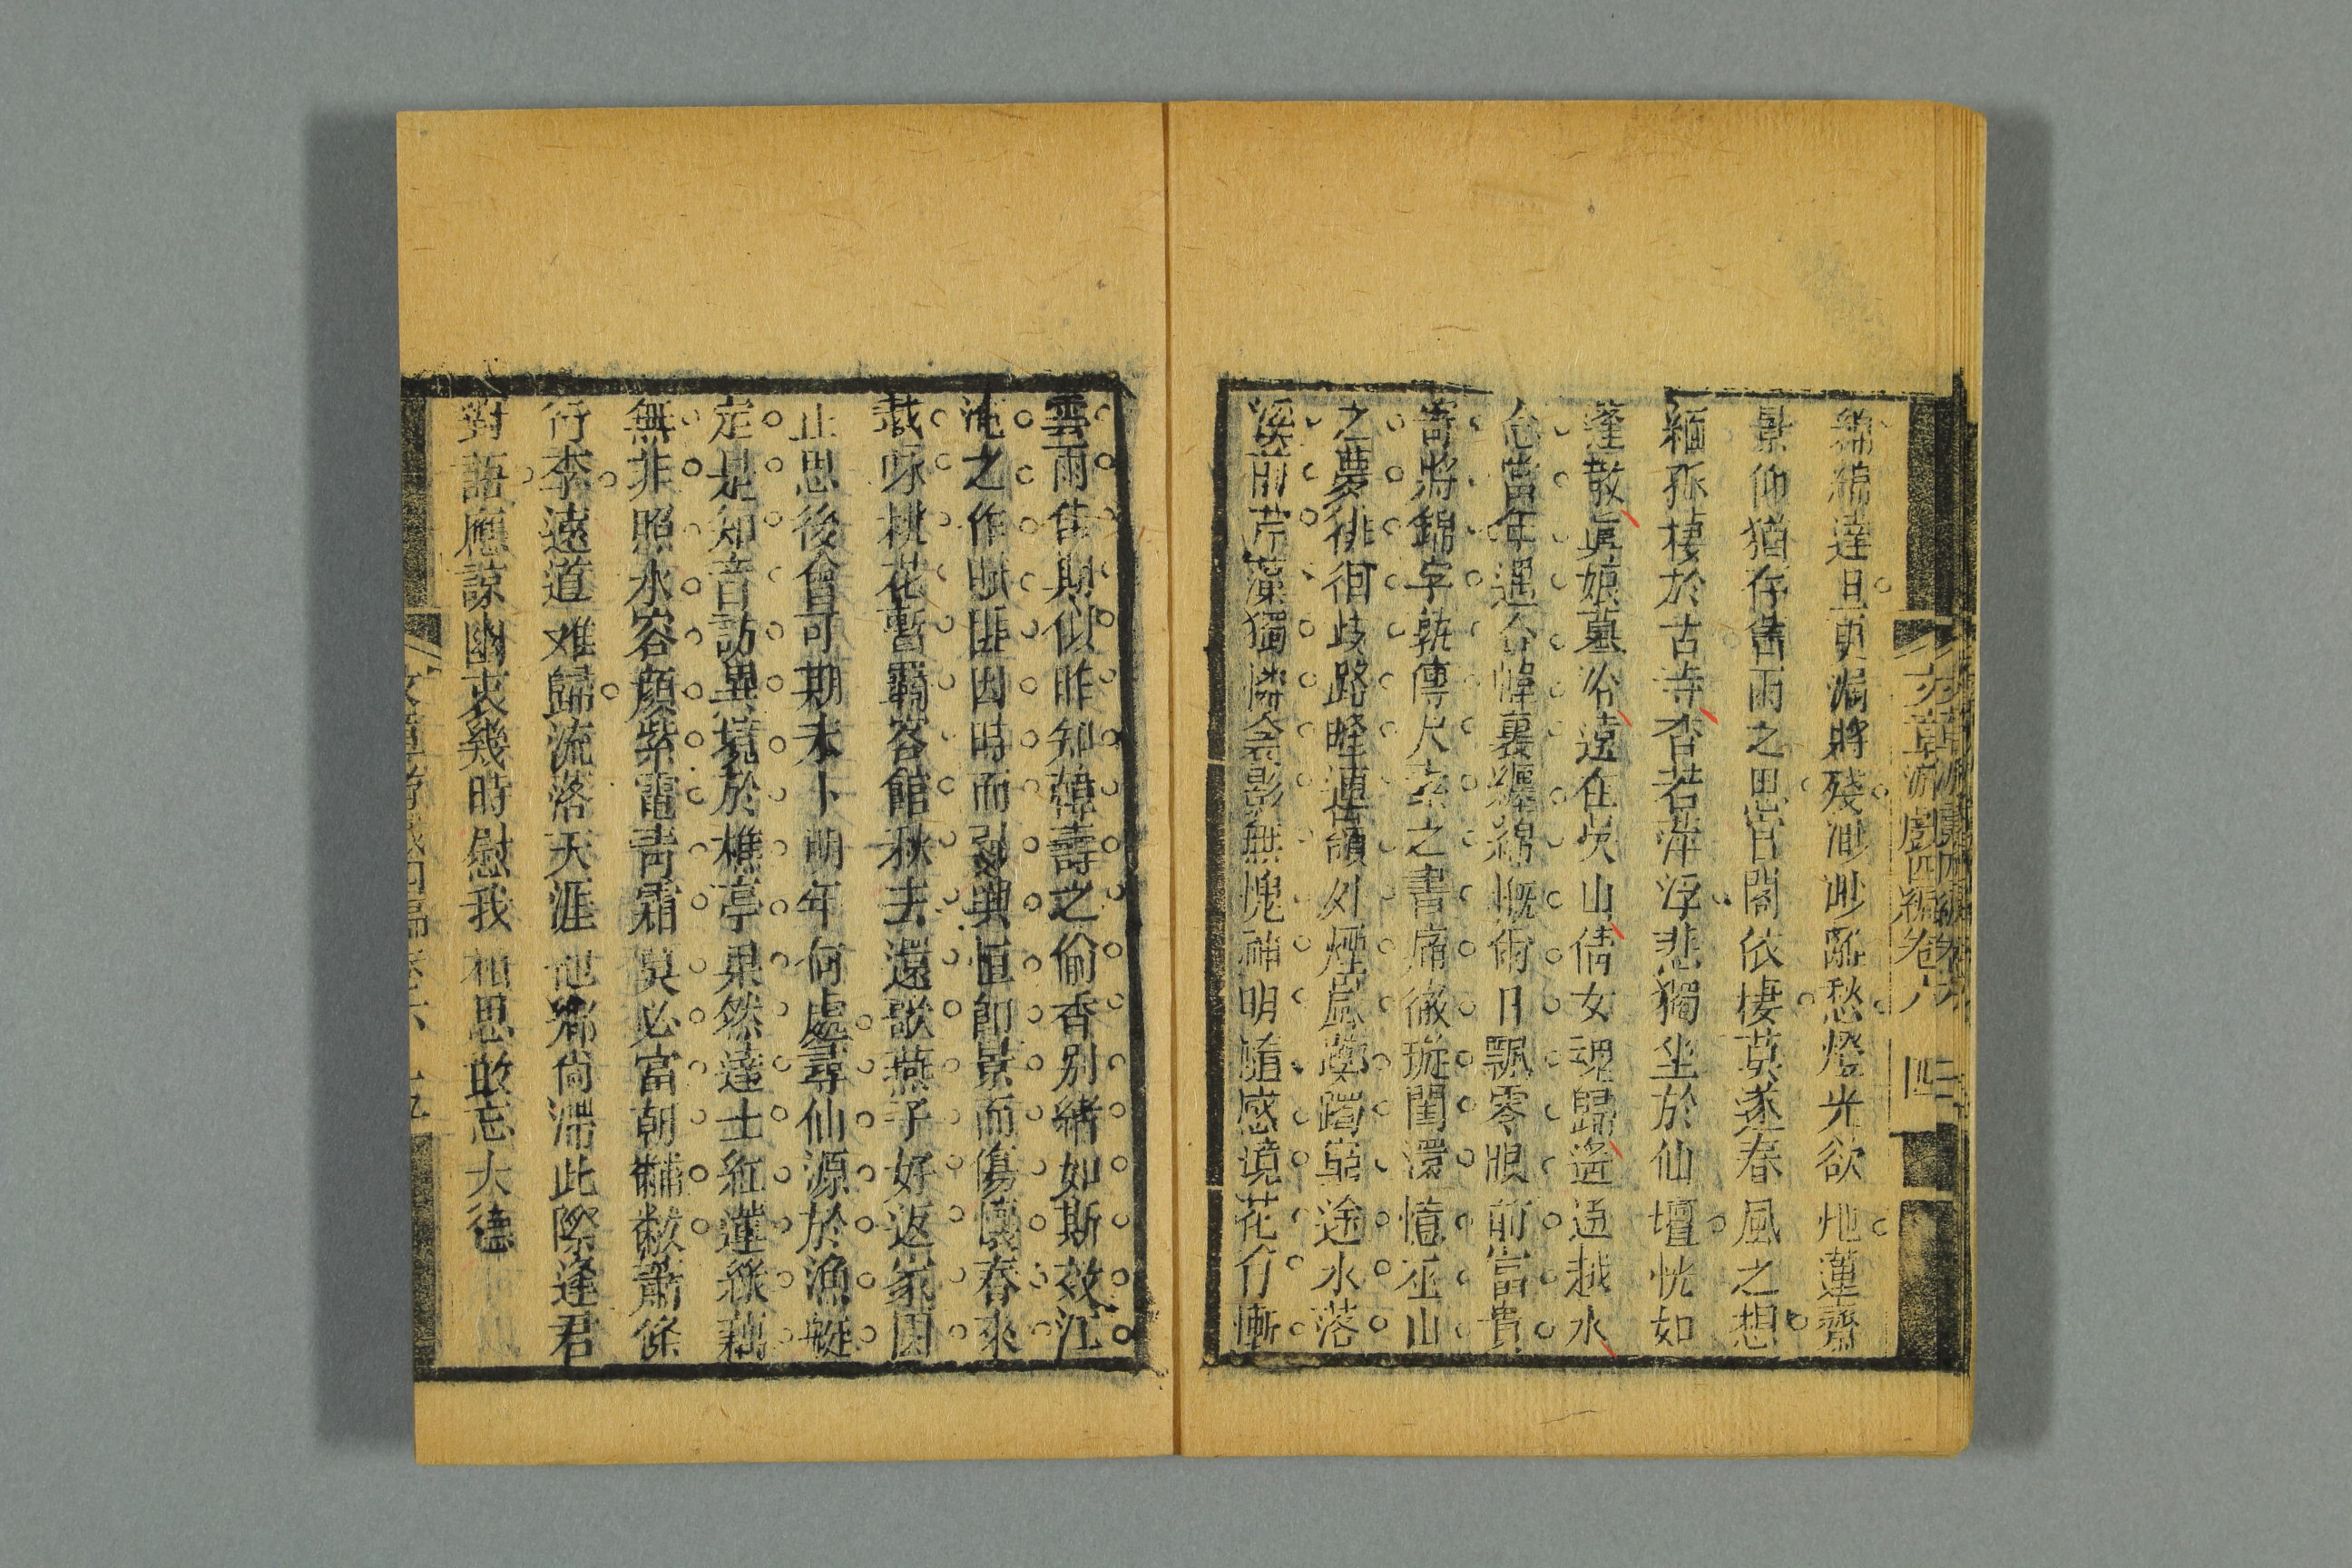 文章游戲四編卷六 四
綿綿達旦更漏將殘渺渺離愁燈光欲灺蓮齋
景仰猶存舊雨之思官閣依棲莫遂春風之想
緬孤棲於古寺杳若萍浮悲獨坐於仙壇恍如
蓬散眞娘墓冷遠在吳山倩女魂歸遙通越水
念當年遇合幃裏纏綿慨衛日飄零眼前富貴
寄將錦字孰傳尺素之書痛徹璇閨還憶巫山
之夢徘徊歧路曈連雲嶺外煙嵐躑躅窮途水落
溪前芹藻獨憐衾影無愧神明隨感境花行慚
雲雨佳期似昨知韓壽之偷香別緒如斯效江
淹之作賦匪因時而引興恒卽景而傷懷春來
栽啄桃花暫羈客館秋去還歌燕子好返家園
止思後會可期未卜明年何處尋仙源於漁艇
定是知音訪異境於樵亭果然達士紅蓮綠藕
無非照水容顏紫電靑霜莫必當朝黼黻蕭條
行李遠道难歸流落天涯他鄉尚滯此際逢君
對語應諒幽衷幾時慰我相思敢忘大德